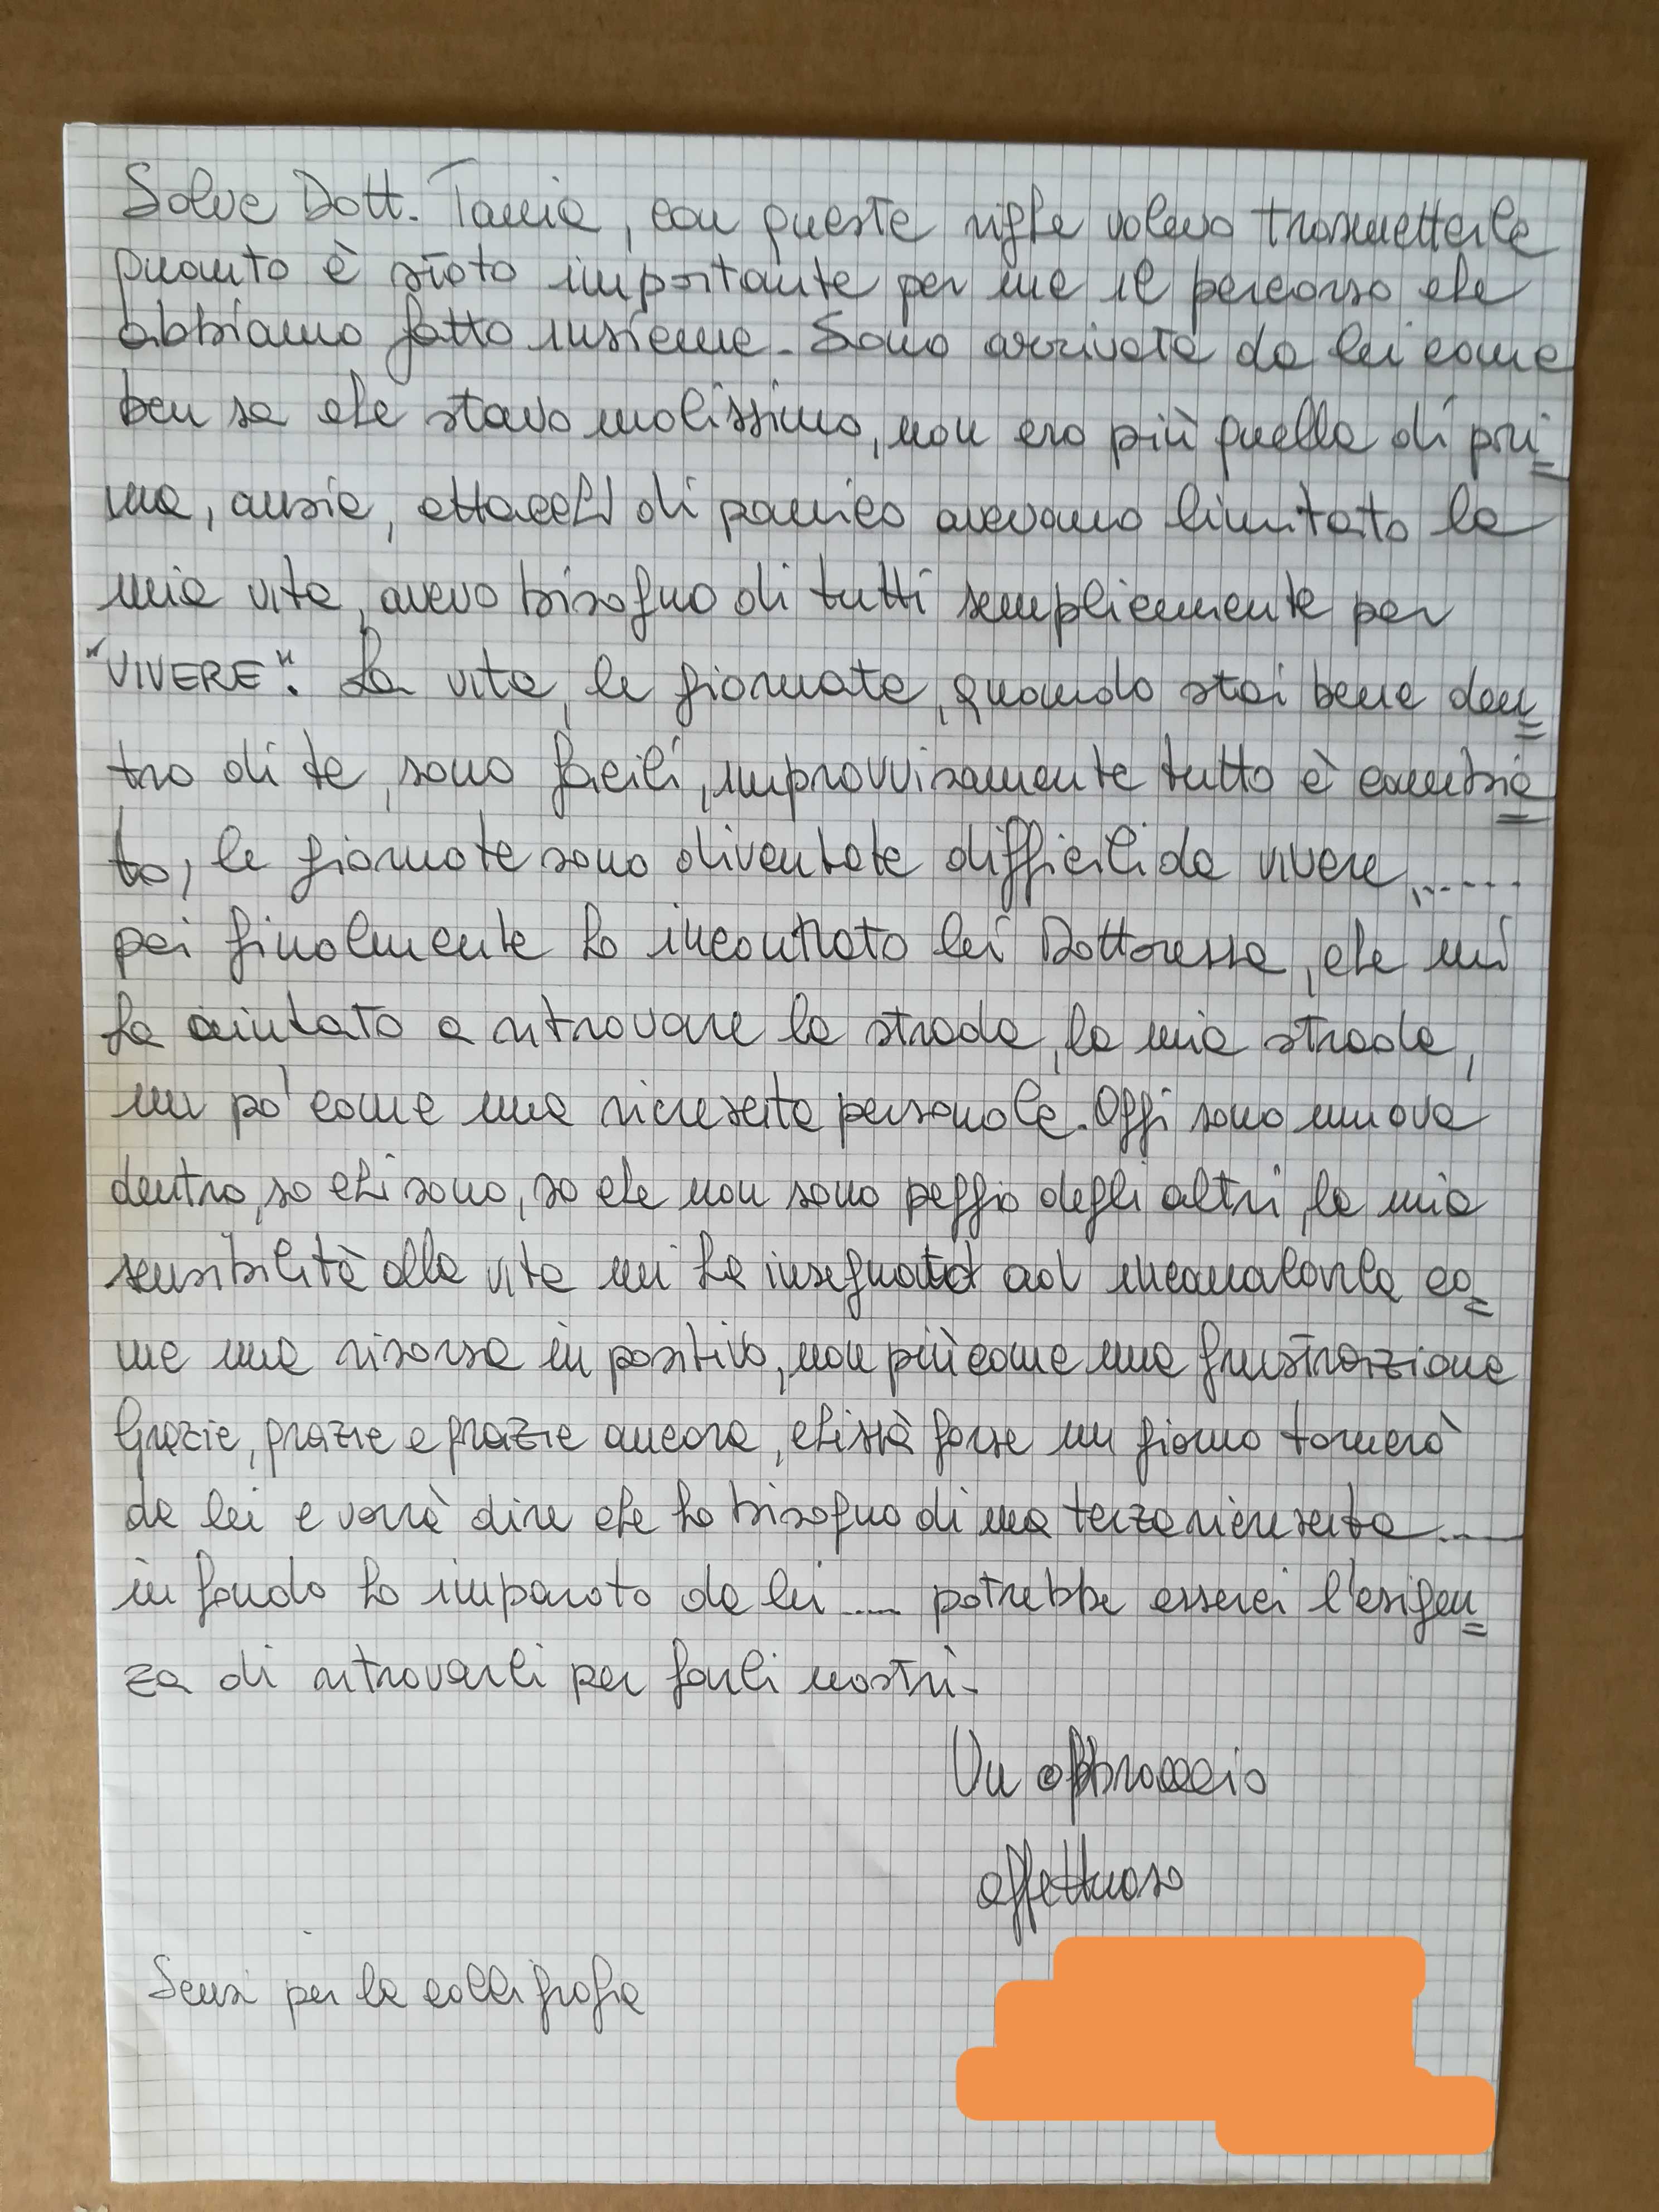 Salve Dott. Tania, con queste righe volevo trasmetterle
quanto è stato importante per me il percorso che
abbiamo fatto insieme. Sono arrivata da lei come
ben sa che stavo malissimo, non ero più quella di pri=
ma, ansia, attacchi di panico avevano limitato la
mia vita, avevo bisogno di tutti semplicemente per
"VIVERE". La vita, le giornate, quando stai bene den=
tro di te, sono facili, improvvisamente tutto è cambia=
to, le giornate sono diventate difficili da vivere,.....
poi finalmente ho incontrato lei Dottoressa, che mi
ha aiutato a ritrovare la strada, la mia strada,
un po' come una ricrescita personale. Oggi sono nuova
dentro, so chi sono, so che non sono peggio degli altri, la mia
sensibilità alla vita mi ha insegnato ad incanalarla co=
me una risorsa in positivo, non più come una frustrazione
Grazie, grazie e grazie ancora, chissà forse un giorno tornerò
da lei e vorrà dire che ho bisogno di una terza ricrescita.....
in fondo ho imparato da lei .... potrebbe esserci l'esigen=
za di ritrovarli per farli nostri.
Un abbraccio
affettuoso
Scusi per la calligrafia